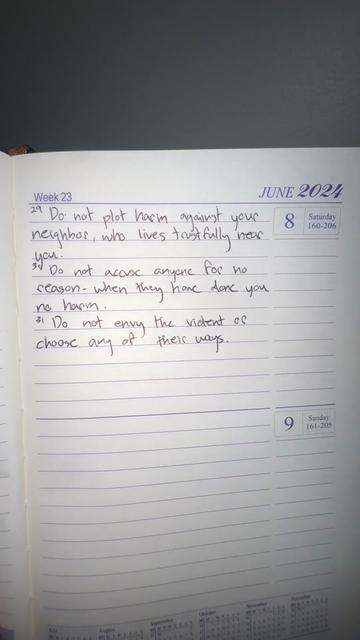 Week 23 JUNE 2024
29 Do not plot harm against your
neighbor, who lives trustfully near
you.
30 Do not accuse anyone for no
reason - when they have done you
no harm.
31 Do not envy the violent or
choose any of their ways.
8 Saturday
160-206
9 Sunday
161-205
July August September October November December